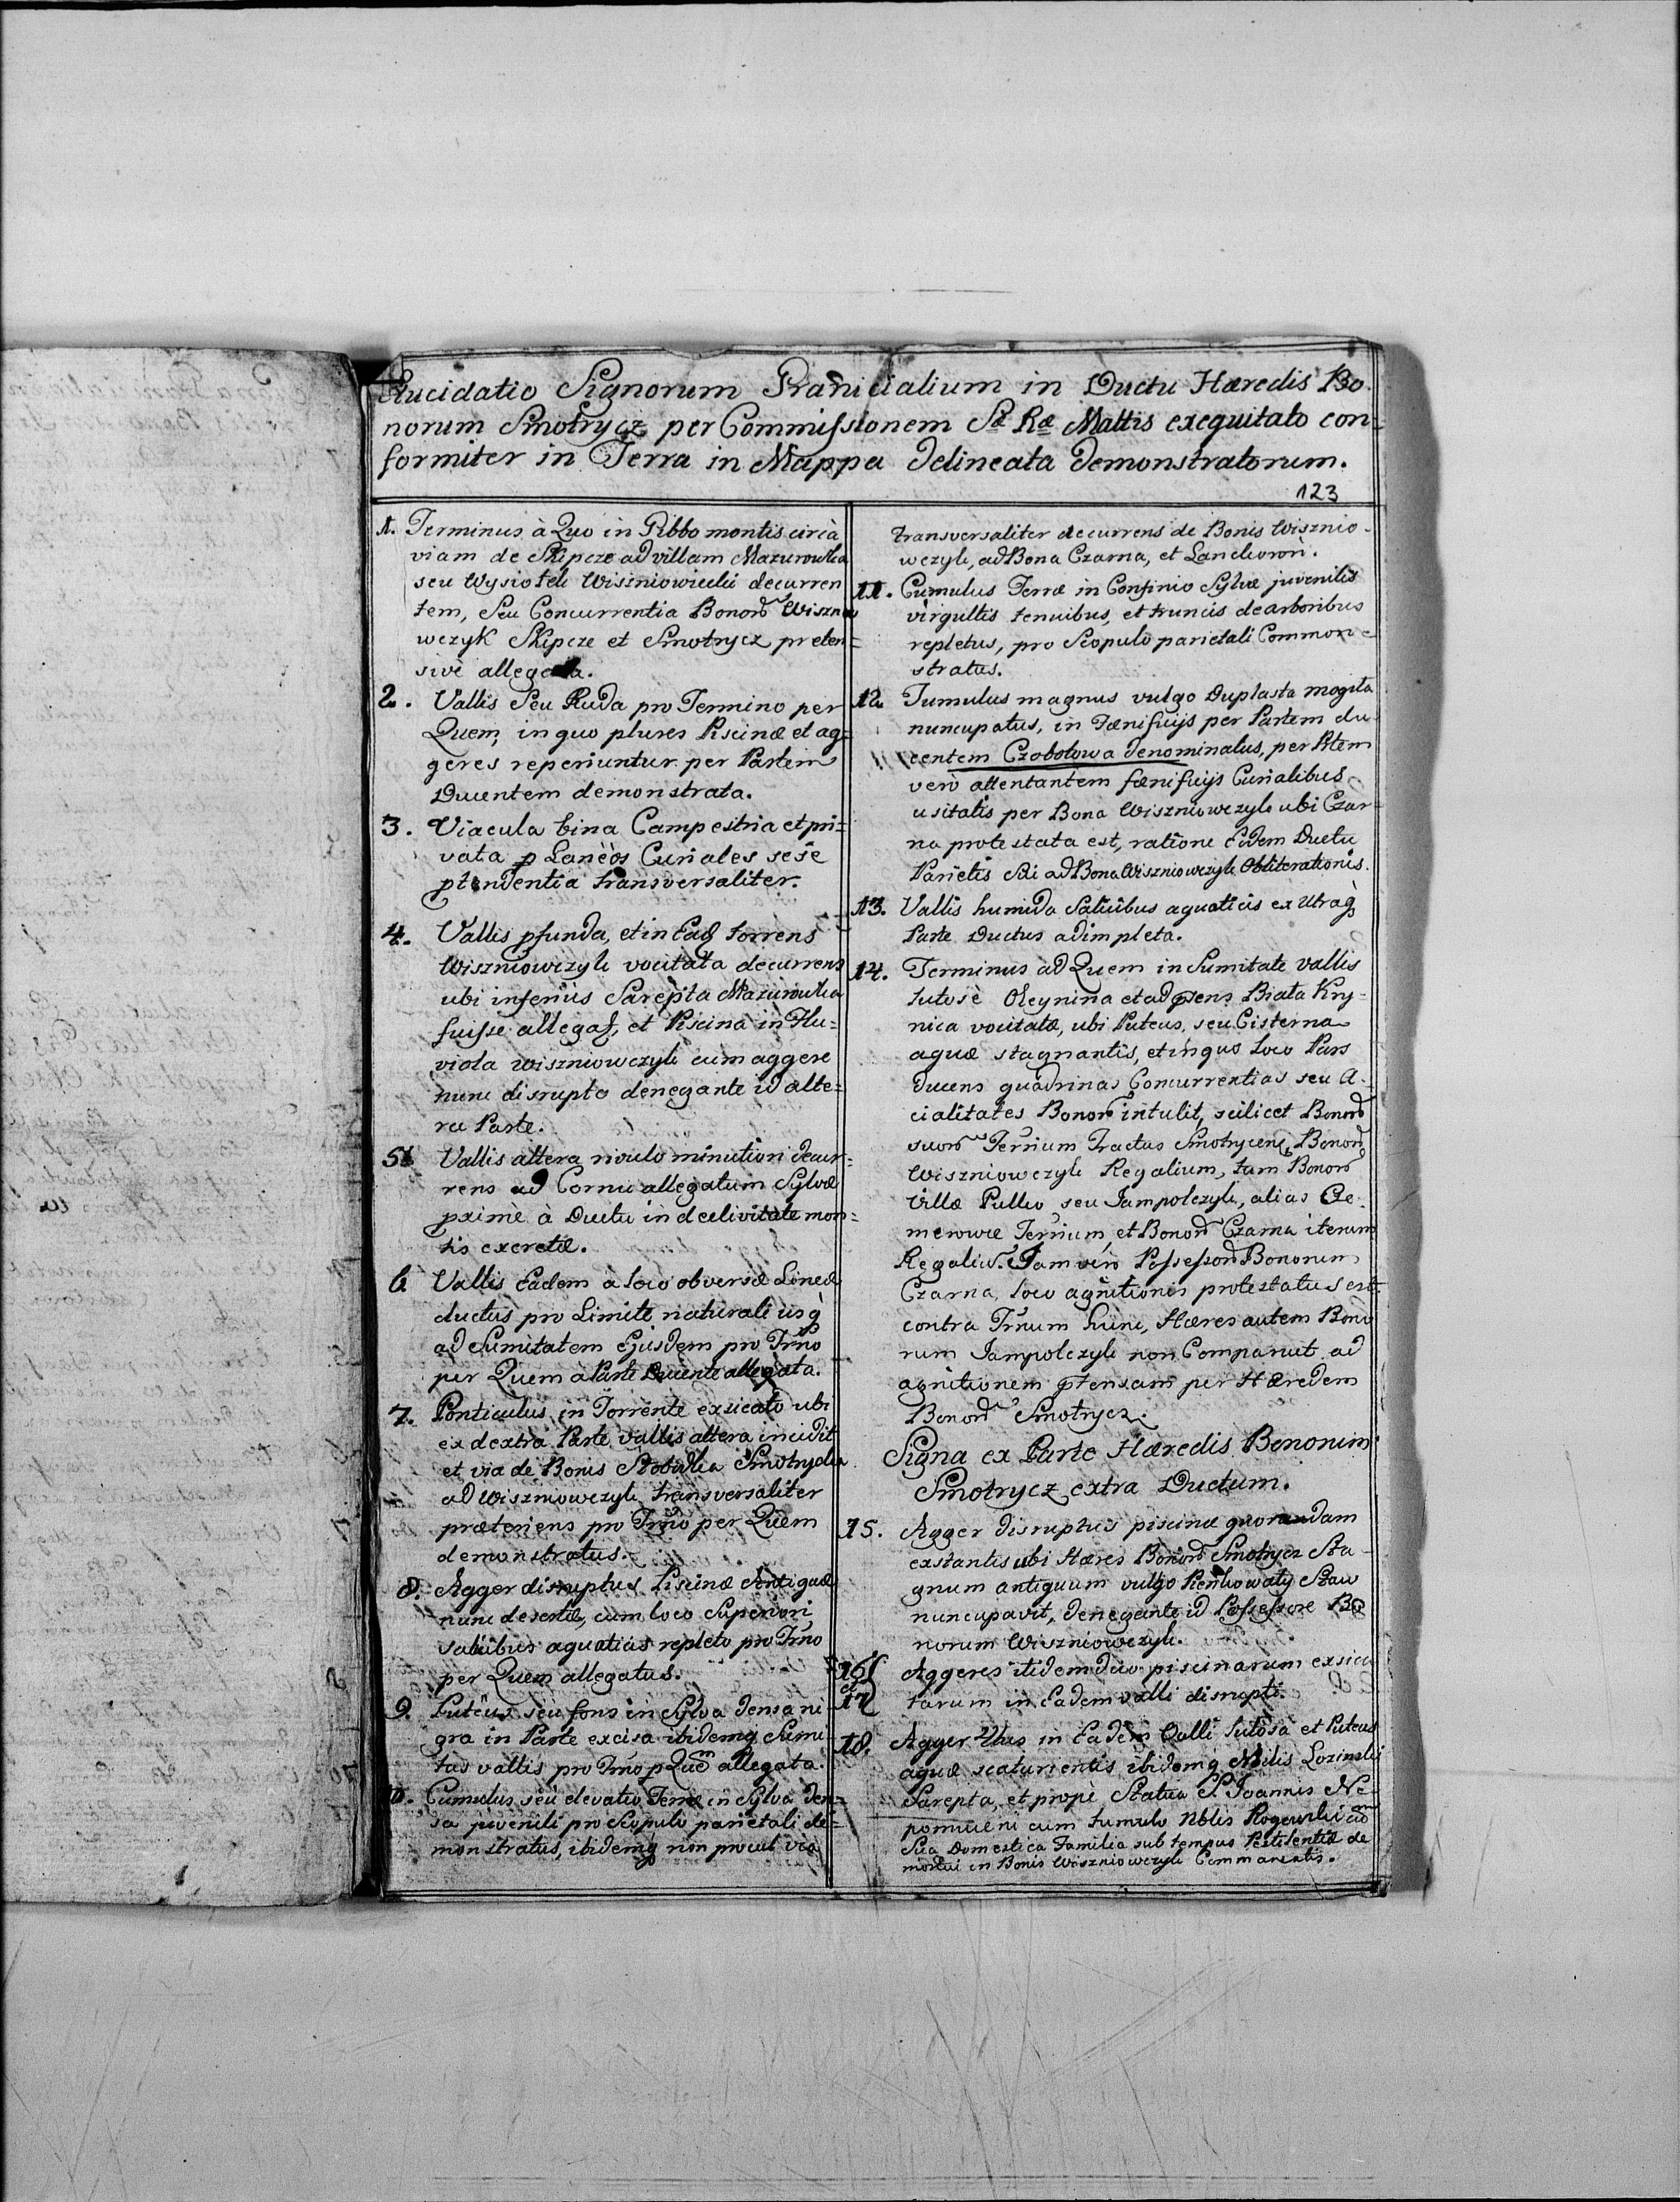 Elucidatio Signorum Granicialium in Ductu Hæredis Bo-
norum Smotrycz per Commissionem Sæ Ræ Mattis exequitato con=
formiter in Terra in Mappa delineata demonstratorum.
123
1. Terminus à Quo in Gibbo montis circà
viam de Skipcze ad villam Mazurowka
seu Wysiołek Wiszniowiecki decurren
tem, Seu Concurrentia Bonorũ Wisznio
wczyk Skipcze et Smotrycz preten=
sivè allegata.
2. Vallis Seu Ruda pro Termino per
Quem, in quo plures Piscinæ et ag=
geres reperiuntur per Partem
Ducentem demonstrata.
3. Viacula bina Campestria et pri=
vata p Laneos Curiales sese
ptendentia transversaliter.
4. Vallis pfunda, et in Eadẽ torrens
Wiszniowczyk vocitata decurrens
ubi inferius Sarepta Mazurowka
fuisse allegat, et Piscina in Flu=
viola Wiszniowczyk cum aggere
nunc disrupto denegante id alte=
ra Parte.
5. Vallis altera rivulo minutiori decur=
rens ad Cornu allegatum Sylvæ
pximè à Ductu in declivitate mon=
tis excretæ.
6 Vallis Eadem à loco obversæ Lineæ
ductus pro Limite naturali usq
ad Sumitatem Ejusdem pro Trño
per Quem à Parte Ducente allegata.
7. Ponticulus in Torrente exsicato ubi
ex dextra Parte vallis altera incidit
et via de Bonis Słobudka Smotrycka
ad Wiszniowczyk transversaliter
præteriens pro Trño per Quem
demonstratus.
8. Agger disruptus Piscinæ Antiquæ
nunc desertæ, cum loco Superiori
salicibus aquaticis repleto pro Trño
per Quem allegatus.
9. Puteus seu fons in Sylva densa ni
gra in Parte excisa ibidemq Sumi
tas vallis pro Trño p Quẽ allegata.
10. Cumulus seu elevatio Terræ in Sylva den=
sa juvenili pro Scopulo parietali de=
monstratus, ibidemq non procul via
transversaliter decurrens de Bonis Wisznio-
wczyk, ad Bona Czarna, et Lanckoron.
11. Cumulus Terræ in Confinio Sylvæ juvenilis
virgultis tenuibus, et truncis de arboribus
repletus, pro Scopulo parietali Common=
stratus.
12. Tumulus magnus vulgo Duplasta mogiła
nuncupatus, in Fænificijs per Partem du
centem Czobotowa denominatus, per Ptem
verò attentantem fænificijs Curialibus
usitatis per Bona Wiszniowczyk ubi Czar=
na protestata est, ratione Eidem Ductu
Parietis Sui ad Bona Wiszniowczyk Obliterationis.
13. Vallis humida Salicibus aquaticis ex utraq
Parte Ductus adimpleta.
14. Terminus ad Quem in Sumitate vallis
lutosè Oleynina et ad psens Biała Kry=
nica vocitatæ, ubi Puteus, seu Cisterna
aquæ stagnantis, et in quo loco Pars
ducens quadrinas Concurrentias seu A-
cialitates Bonorũ intulit, scilicet Bonorũ
suorũ Terrium Tractus Smotrycens, Bonorũ
Wiszniowczyk Regalium, tum Bonorũ
Villæ Pulko seu Jampolczyk, alias Cze-
merowce Terrium, et Bonorũ Czarna iterum
Regaliũ. Jam vero Possessorũ Bonorum
Czarna, loco agnitionis protestatus est
contra Trñum hunc, Hæres autem Bono
rum Jampolczyk non Comparuit ad
agnitionem ptensam per Hæredem
Bonorũ Smotrycz.
Signa ex Parte Hæredis Bonorum
Smotrycz extra Ductum.
15. Agger disruptus piscinæ quondam
exstantis ubi Hæres Bonorũ Smotrycz Sta-
gnum antiquum vulgo Pieńkowaty Staw
nuncupavit, denegante id Possessore Bo
norum Wiszniowczyk.
16 et 17 Aggeres itidem duo piscinarum exsica
tarum in Eadem valli disrupti.
18. Agger Unus in Eadem Valli lutosa et Puteus
aquæ scaturientis ibidemq Nbilis Lozinski
Sarepta, et propè Statua S. Joannis Ne-
pomuceni cum tumulo Nblis Rogowski cum
Sua Domestica Familia sub tempus Pestilentiæ de
mortui in Bonis Wiszniowczyk Commorantis.